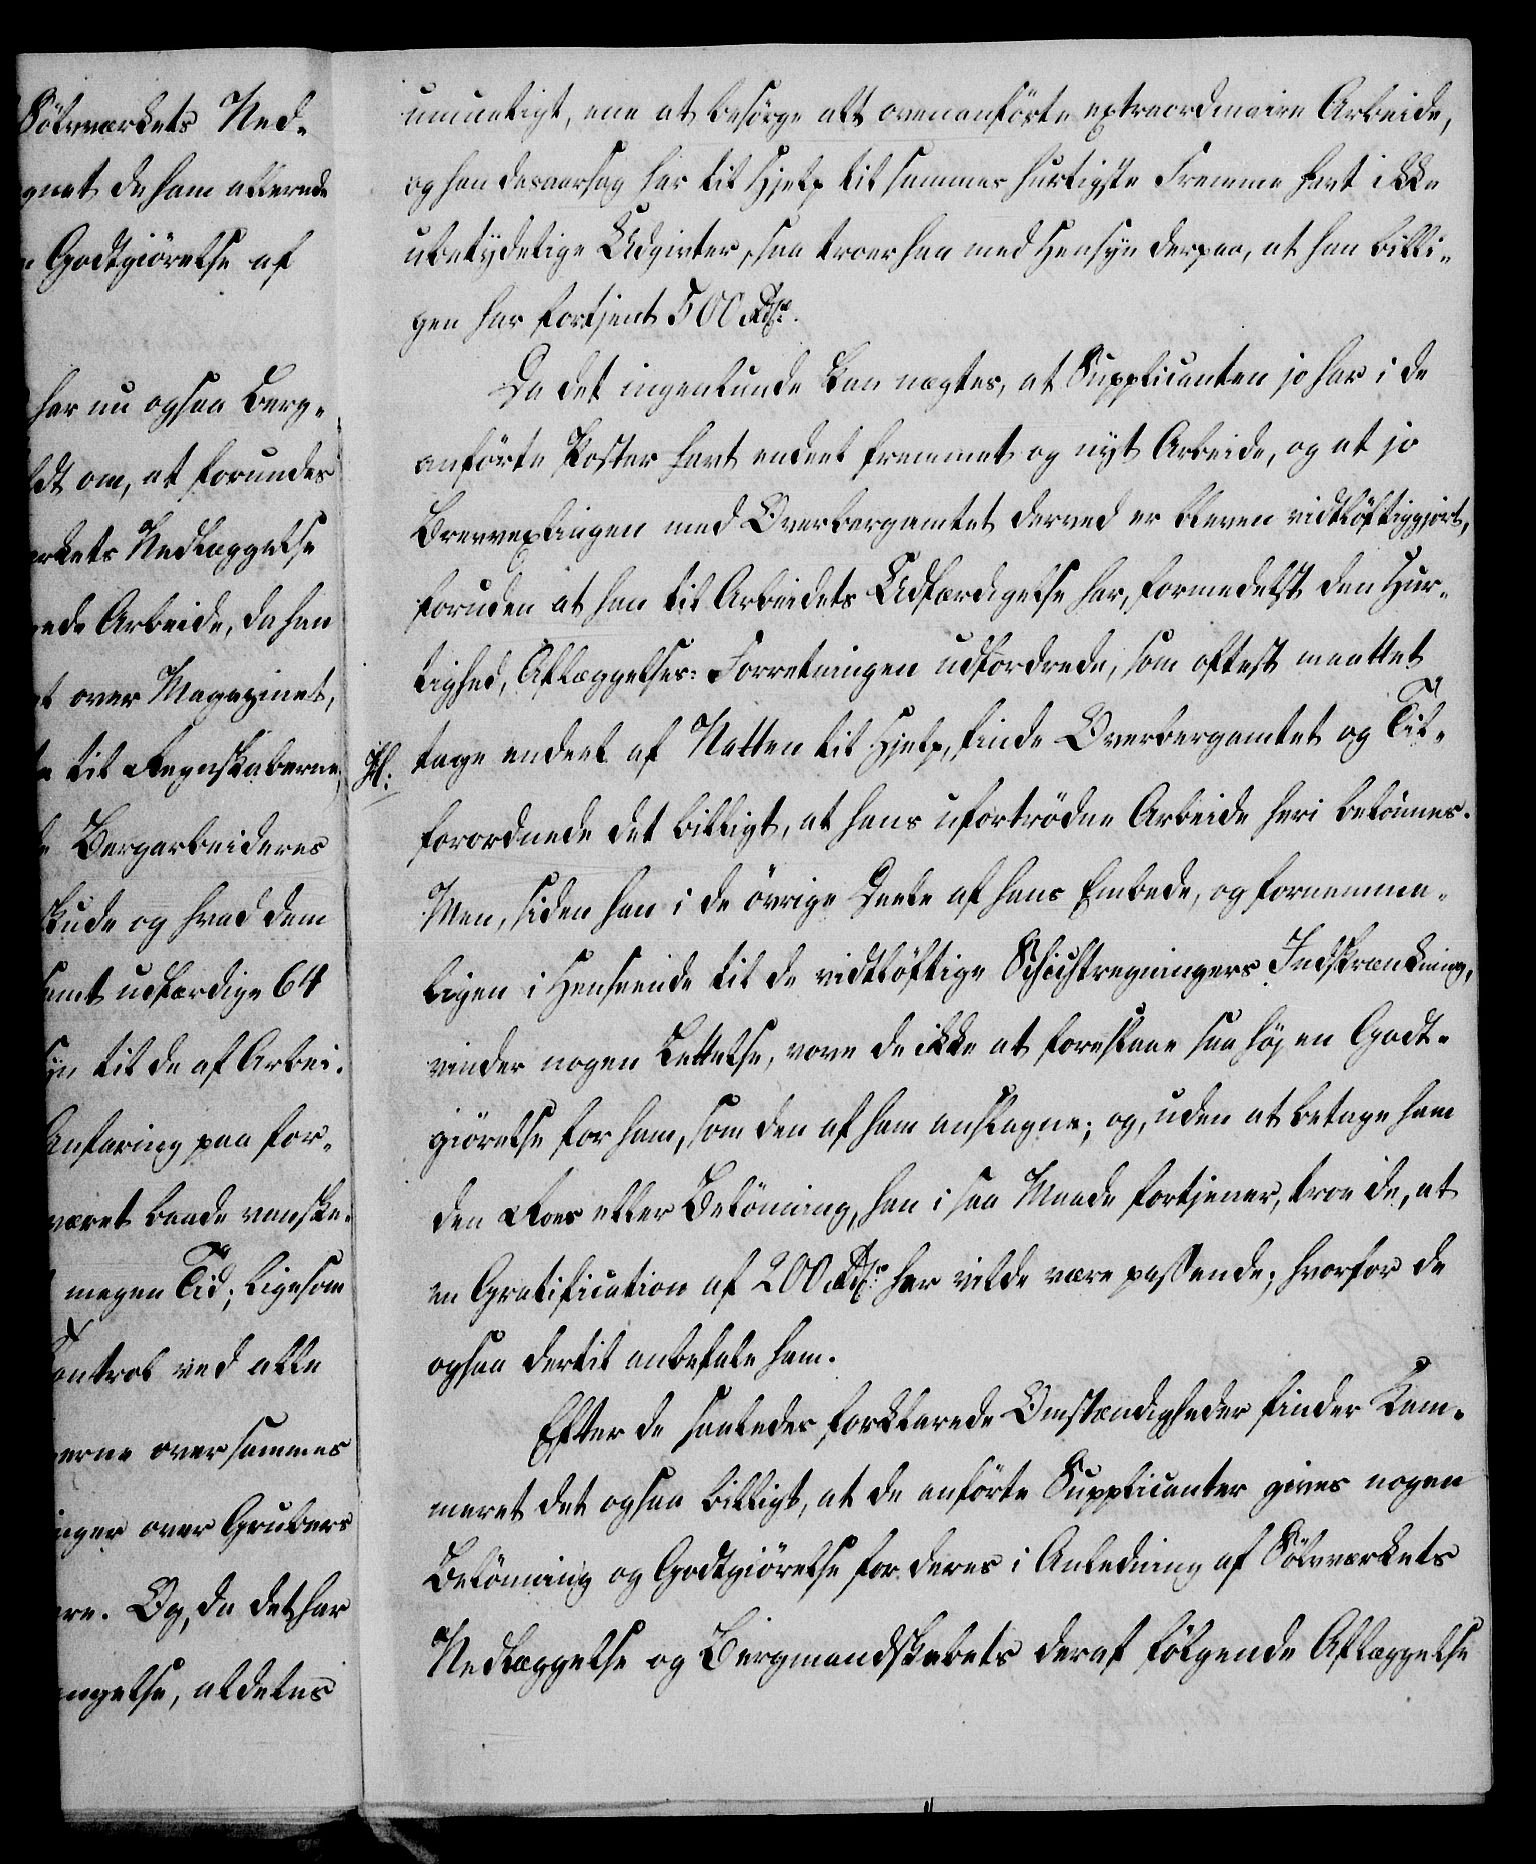 Sölvværkets Ned-
gnet de ham allerede
Godtgiörelse af
har nu ogsaa Berg-
ldt om, at forundes
rkets Nedlæggelse
ede Arbeide, da han
et over Magazinet,
te til Regnskaberne,
de Bergarbeideres
skude og hvad dem
samt udfærdige 64
syn til de af Arbei-
Anfaring paa for-
været baade vanske-
megen Tid; ligesom
Control ved alle
erne over sammes
inger over Grubers
ere. Og, da det har
ngelse, aldeles
umueligt, ene at besörge alt ovenanförte extraordinaire Arbeide,
og han desaarsag har til Hjelp til sammes hurtigste Fremme havt ikke
ubetydelige Udgivter, saa troer han med Hensyn derpaa, at han billi-
gen har fortjent 500 Rdr.
Da det ingenlunde kan nægtes, at Supplicanten jo har i de
anförte Poster havt endeel fremmet og nyt Arbeide, og at jo
Brevvexlingen med Overbergamtet derved er bleven vidtlöftiggjort,
foruden at han til Arbeidets Udfærdigelse har, formedelst den Hur-
tighed, Aflæggelses-Forretningen udfordrede, som oftest maattet
tage endeel af Natten til Hjelp, finde Overbergamtet og Til-
forordnede det billigt, at hans ufortrödne Arbeide heri belönnes.
Men, siden han i de övrige Deele af hans Embede, og fornemme-
ligen i Henseende til de vidtlöftige Schichtregningers Indskrænkning,
vinder nogen Lettelse, vove de ikke at foreslaae saa höj en Godt-
giörelse for ham, som den af ham anslagne; og, uden at betage ham
den Roes eller Belönning, han i saa Maade fortjener, troe de, at
en Gratification af 200 Rdr. her vilde være passende; hvorfor de
ogsaa dertil anbefale ham.
Efter de saaledes forklarede Omstændigheder finder Kam-
meret det ogsaa billigt, at de anförte Supplicanter gives nogen
Belönning og Godtgiörelse for deres i Anledning af Sölvværkets
Nedlæggelse og Bergmandskabets deraf fölgende Aflæggelse